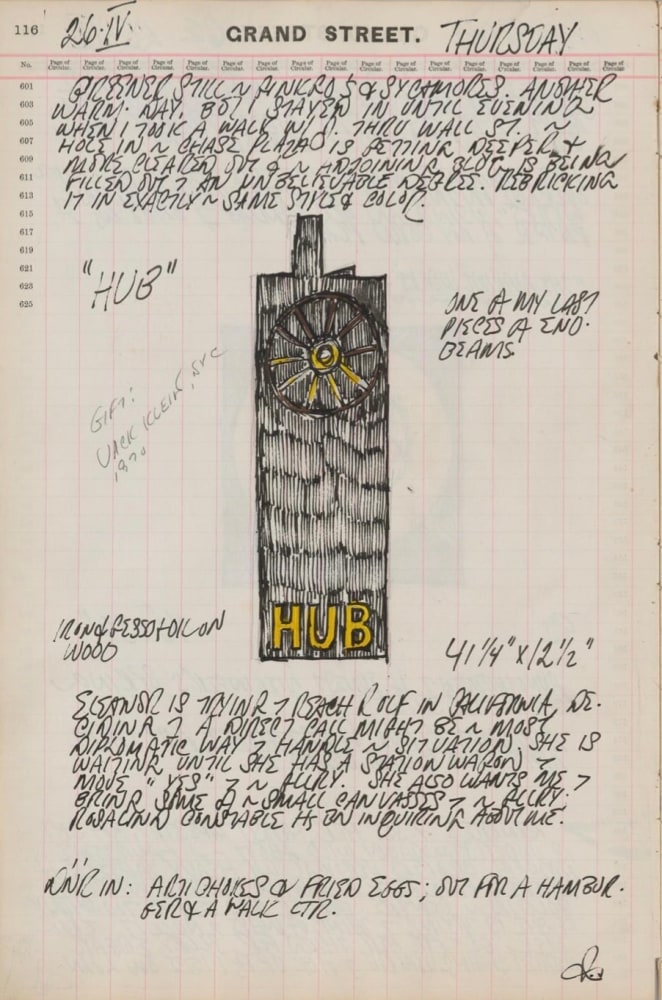 116 26·IV GRAND STREET. THURSDAY
No. Page of Circular. Page of Circular. Page of Circular. Page of Circular. Page of Circular. Page of Circular. Page of Circular. Page of Circular. Page of Circular. Page of Circular. Page of Circular. Page of Circular. Page of Circular. Page of Circular. Page of Circular. Page of Circular.
601
603
605
607
609
611
613
615
617
619
621
623
625
GREENER STILL ~ GINKGOS & SYCAMORES. ANOTHER
WARM DAY, BUT I STAYED IN UNTIL EVENING
WHEN I TOOK A WALK THRU WALL ST. ~
HOLE IN ~ CHASE PLAZA IS GETTING DEEPER &
MORE CLEARED OUT & ~ ADJOINING BLDG. IS BEING
FILLED OUT 7 AN UNBELIEVABLE DEGREE. REBRICKING
IT IN EXACTLY ~ SAME STYLE & COLOR.
"HUB"
ONE OF MY LAST
PIECES OF END-
BEAMS.
GIFT:
JACK KLEIN, NYC
1970
HUB
IRON & GESSO & OIL ON
WOOD
41 1/4" X 12 1/2"
ELEANOR IS TRYING 7 REACH ROLF IN CALIFORNIA, DE-
CIDING 7 A DIRECT CALL MIGHT BE ~ MOST
DIPLOMATIC WAY 7 HANDLE ~ SITUATION. SHE IS
WAITING UNTIL SHE HAS A STATION WAGON 7
MOVE "YES" 7 ~ GLLRY. SHE ALSO WANTS ME 7
BRING SOME OF ~ SMALL CANVASSES 7 ~ GLLRY.
ROSALIND CONSTABLE HS BN INQUIRING ABOUT ME.
DÏNR IN: ARTICHOKES & FRIED EGGS; OUT FOR A HAMBUR-
GER & A WALK